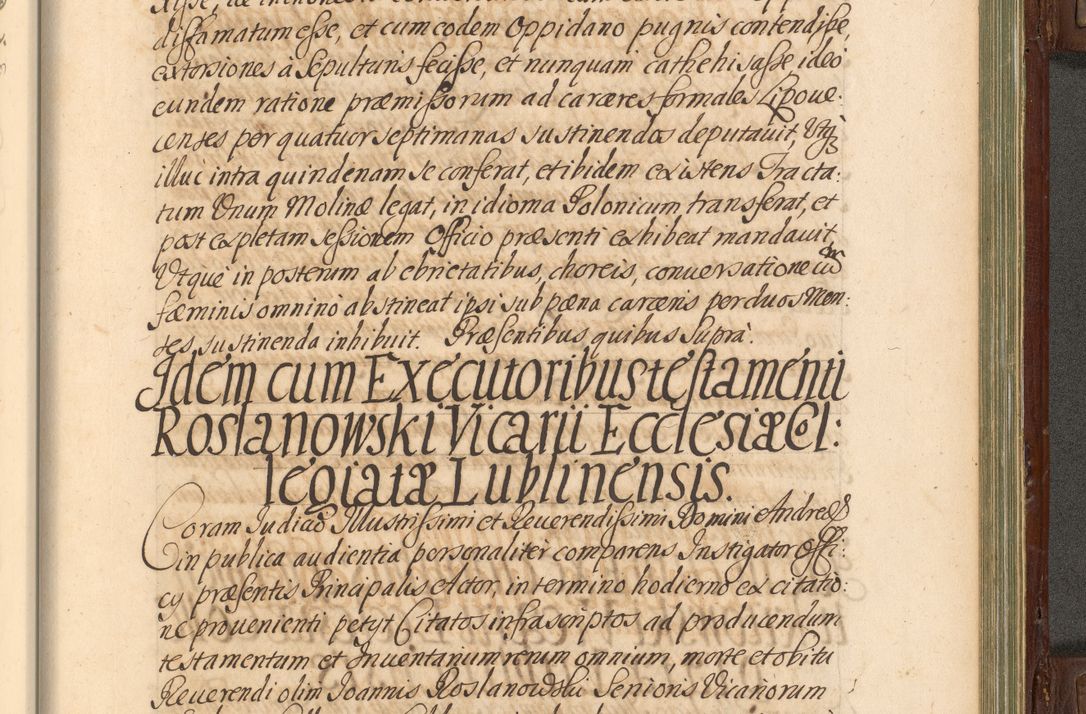 diffamatum esse, et cum eodem Oppidano pugnis contendisse,
extorsiones à Sepulturis fecisse, et nunquam cathehisasse ideo
eundem ratione præmissorum ad carceres formales Lipoue:
censes per quatuor septimanas sustinendos deputauit, Vtq3
illuc intra quindenam se conferat, et ibidem existens Tracta:
tum Vnum Molinæ legat, in idioma Polonicum transferat, et
post expletam sessionem Officio præsenti exhibeat mandauit,
Vtque in posterum ab ebrietatibus, choreis, conuersatione cum
fæminis omnino abstineat ipsi sub pæna carceris per duos Men:
ses sustinenda inhibuit. Præsentibus quibus Supra.
Idem cum Executoribus testamenti
Roslanowski Vicarii Ecclesiæ Col:
legiatæ Lublinensis.
Coram Iudicio Illustrissimi et Reuerendissimi Domini Andreæ
in publica audientia personaliter comparens Instigator Offi:
cy præsentis Principalis Actor, in termino hodierno ex citatio:
ne prouenienti petyt Citatos infrascriptos ad producendum
testamentum et Inuentarium rerum omnium, morte et obitu
Reuerendi olim Ioannis Roslanowski Senioris Vicariorum